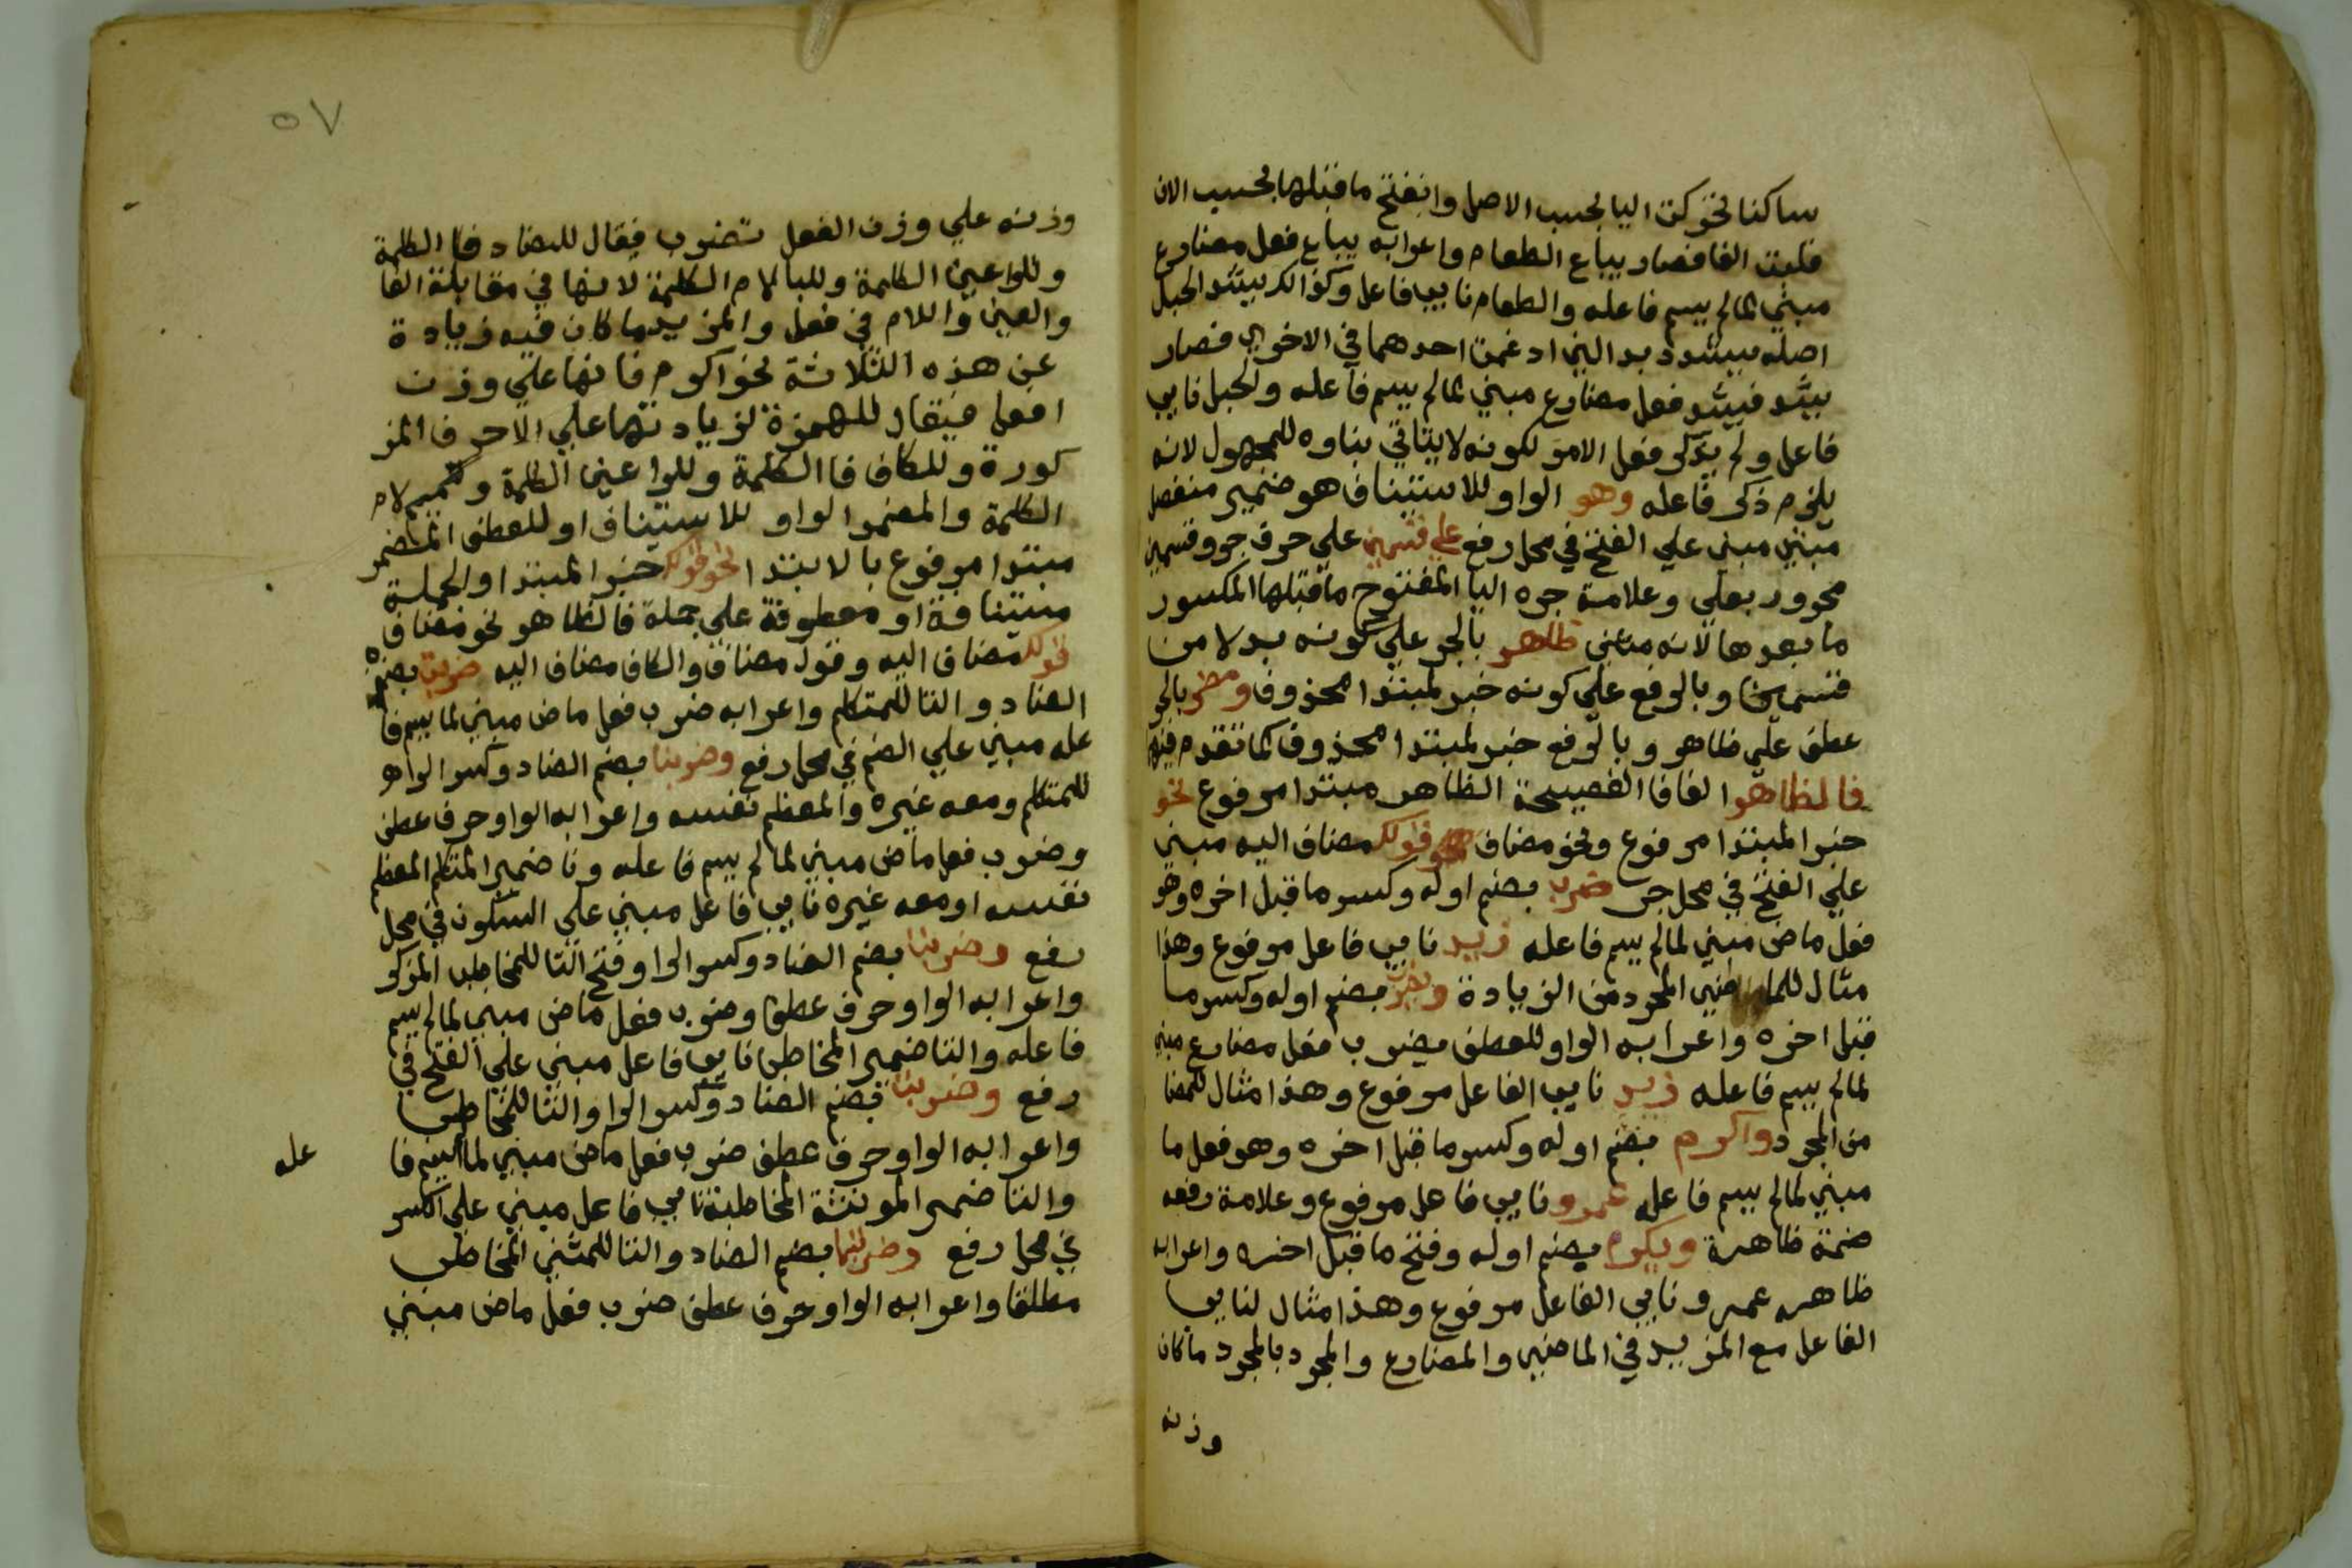 ساكنا تحركت اليا بحسب الاصل وانفتح ما قبلها بحسب الان
قلبت الفا فصار يباع الطعام واعرابه يباع فعل مضارع
مبني لما لم يسم فاعله والطعام نايب فاعل وكذالك يشد الحبل
اصله يشدد بدالين ادغمت احدهما في الاخري فصار
يشد فيشد فعل مضارع مبني لما لم يسم فاعله والحبل نايب
فاعل ولم يذكر فعل الامر لكونه لا يتاتي بناوه للمجهول لانه
يلزم ذكر فاعله وهو الواو للاستيناف هو ضمير منفصل
مبني علي الفتح في محل رفع علي قسمين علي حرف جر وقسمين
مجرور بعلي وعلامة جره اليا المفتوح ما قبلها المكسور
ما بعدها لانه مثني ظاهر بالجر علي كونه بدلا من
قسمين وبالرفع علي كونه خبر لمبتدا محذوف ومضمر بالجر
عطف علي ظاهر وبالرفع خبر لمبتدا محذوف كما تقدم فيه
فالظاهر الفا فا الفصيحة الظاهر مبتدا مرفوع نحو
خبر المبتدا مرفوع ونحو مضاف قولك مضاف اليه مبني
علي الفتح في محل جر ضرب بضم اوله وكسر ما قبل اخره وهو
فعل ماض مبني لما لم يسم فاعله زيد نايب فاعل مرفوع وهذا
مثال للماضي المجرد من الزيادة ويضرب بضم اوله وكسر ما
قبل اخره واعرابه الواو للعطف يضرب فعل مضارع مبني
لما لم يسم فاعله زيد نايب الفاعل مرفوع وهذا مثال للمضا
من المجرد واكرم بضم اوله وكسر ما قبل اخره وهو فعل ما
مبني لما لم يسم فاعله عمرو نايب فاعل مرفوع وعلامة رفعه
ضمة ظاهرة ويكرم بضم اوله وفتح ما قبل اخره واعرابه
ظاهر عمرو نايب الفاعل مرفوع وهذا مثال لنايب
الفاعل مع المزيد في الماضي والمضارع والمجرد بالمجرد ما كان
وزنه
٥٧
وزنه علي وزن الفعل تضرب فيقال للضاد فا الكلمة
وللرا عين الكلمة وللبا لام الكلمة لانها في مقابلة الفا
والعين واللام في فعل والمزيد ما كان فيه زيادة
عن هذه الثلاثة نحو اكرم فانها علي وزن
افعل فيقال للهمزة لزيادتها علي الاحرف المذ
كورة وللكاف فا الكلمة وللرا عين الكلمة وللميم لام
الكلمة والمضمر الواو للاستيناف او للعطف المضمر
مبتدا مرفوع بالابتدا نحو قولك خبر المبتدا والجملة
مستينافة او معطوفة علي جملة فالظاهر نحو مضاف
قولك مضاف اليه وقول مضاف والكاف مضاف اليه ضربت بضم
الضاد والتا للمتكلم واعرابه ضرب فعل ماض مبني لما يسم فا
عله مبني علي الضم في محل رفع وضربنا بضم الضاد وكسر الرا وهو
للمتكلم ومعه غيره والمعظم نفسه واعرابه الواو حرف عطف
وضرب فعل ماض مبني لما لم يسم فاعله ونا ضمير المتكلم المعظم
نفسه او معه غيره نايب فاعل مبني علي السكون في محل
رفع وضربت بضم الضاد وكسر الرا وفتح التا للمخاطب المذكر
واعرابه الواو حرف عطف وضرب فعل ماض مبني لما لم يسم
فاعله والتا ضمير المخاطب نايب فاعل مبني علي الفتح في
رفع وضربت بضم الضاد وكسر الرا والتا للمخاطب
واعرابه الواو حرف عطف ضرب فعل ماض مبني لما لم يسم فا
عله
والتا ضمير المونثة المخاطبة نايب فاعل مبني علي الكسر
في محل رفع وضربتما بضم الضاد والتا للمثني المخاطب
مطلقا واعرابه الواو حرف عطف ضرب فعل ماض مبني